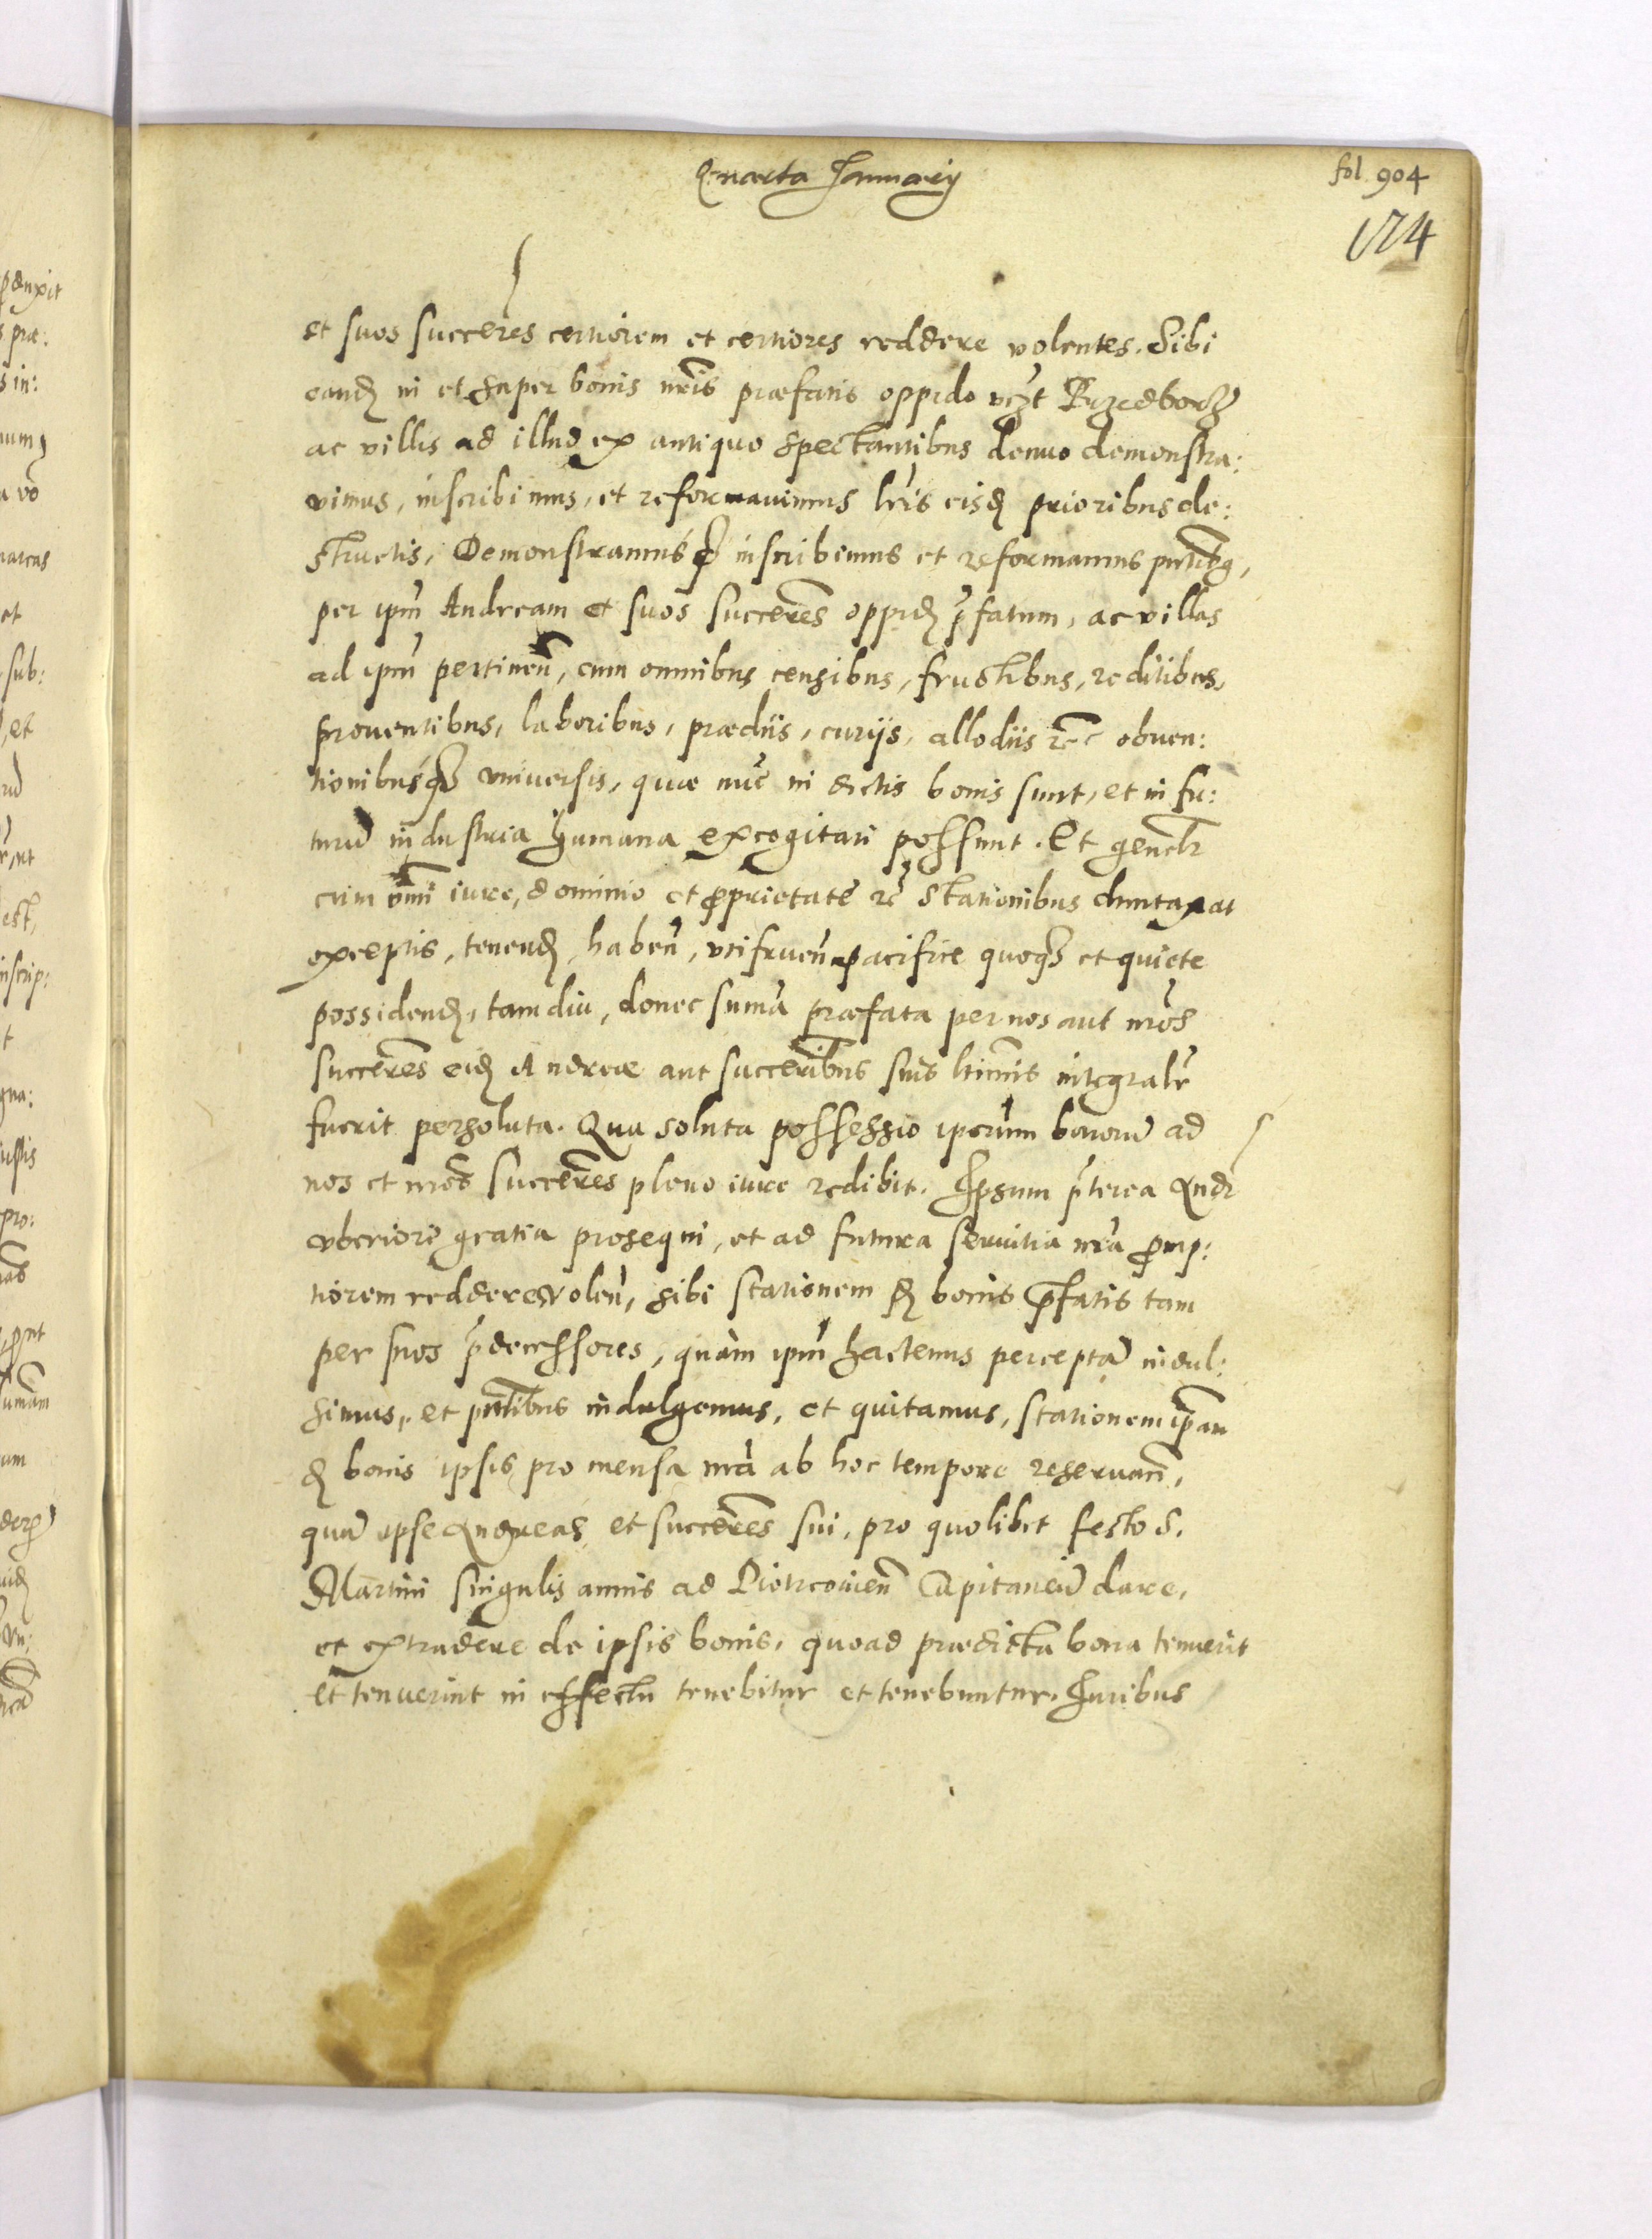 Quarta January
fol. 904
174
et suos succeres certiorem et certiores reddere volentes. Sibi
eand in et super bonis nris præfatis oppido vczt Przedborz
ac villis ad illud ex antiquo spectantibus denuo demonstra:
vimus, inscribimus, et reformavimus lris eisd prioribus de:
structis, Demonstramusq inscribimus et reformamus pntibq,
per ipm Andream et suos succeres oppid pfatum, ac villas
ad ipm pertinen, cum omnibus censibus, fructibus, reditibus,
proventibus, laboribus, prædiis, curijs, allodiis etc obven:
tionibusq vniversis, quæ nuc in dictis bonis sunt, et in fu:
turu industria humana excogitari possunt. Et genelr
cum omi iure, dominio et proprietate etc stationibus duntaxat
exceptis, tenend, haben, vtifruen pacifice quoq et quiete
possidend, tam diu, donec suma præfata per nos aut nros
succeres eid Andreæ aut succeribus suis ltimis integralr
fuerit persoluta. Qua soluta possessio iporum bonoru ad
nos et nros succeres pleno iure redibit. Ipsum pterea Andr
vberiori gratia prosequi, et ad futura servitia nra promp:
tiorem reddere volen, sibi stationem d bonis pfatis tam
per suos pdecessores, quàm ipm hactenus percepta indul:
simus, et pntibus indulgemus, et quitamus, stationem ipam
d bonis ipsis pro mensa nra ab hoc tempore reservan,
qua ipse Andreas et succeres sui, pro quolibet festo S.
Martini singulis annis ad Piotrcovien Capitaneu dare,
et extradere de ipsis bonis, quoad prædicta bona tenuerit
et tenuerint in effectu tenebitur et tenebuntur. Iuribus